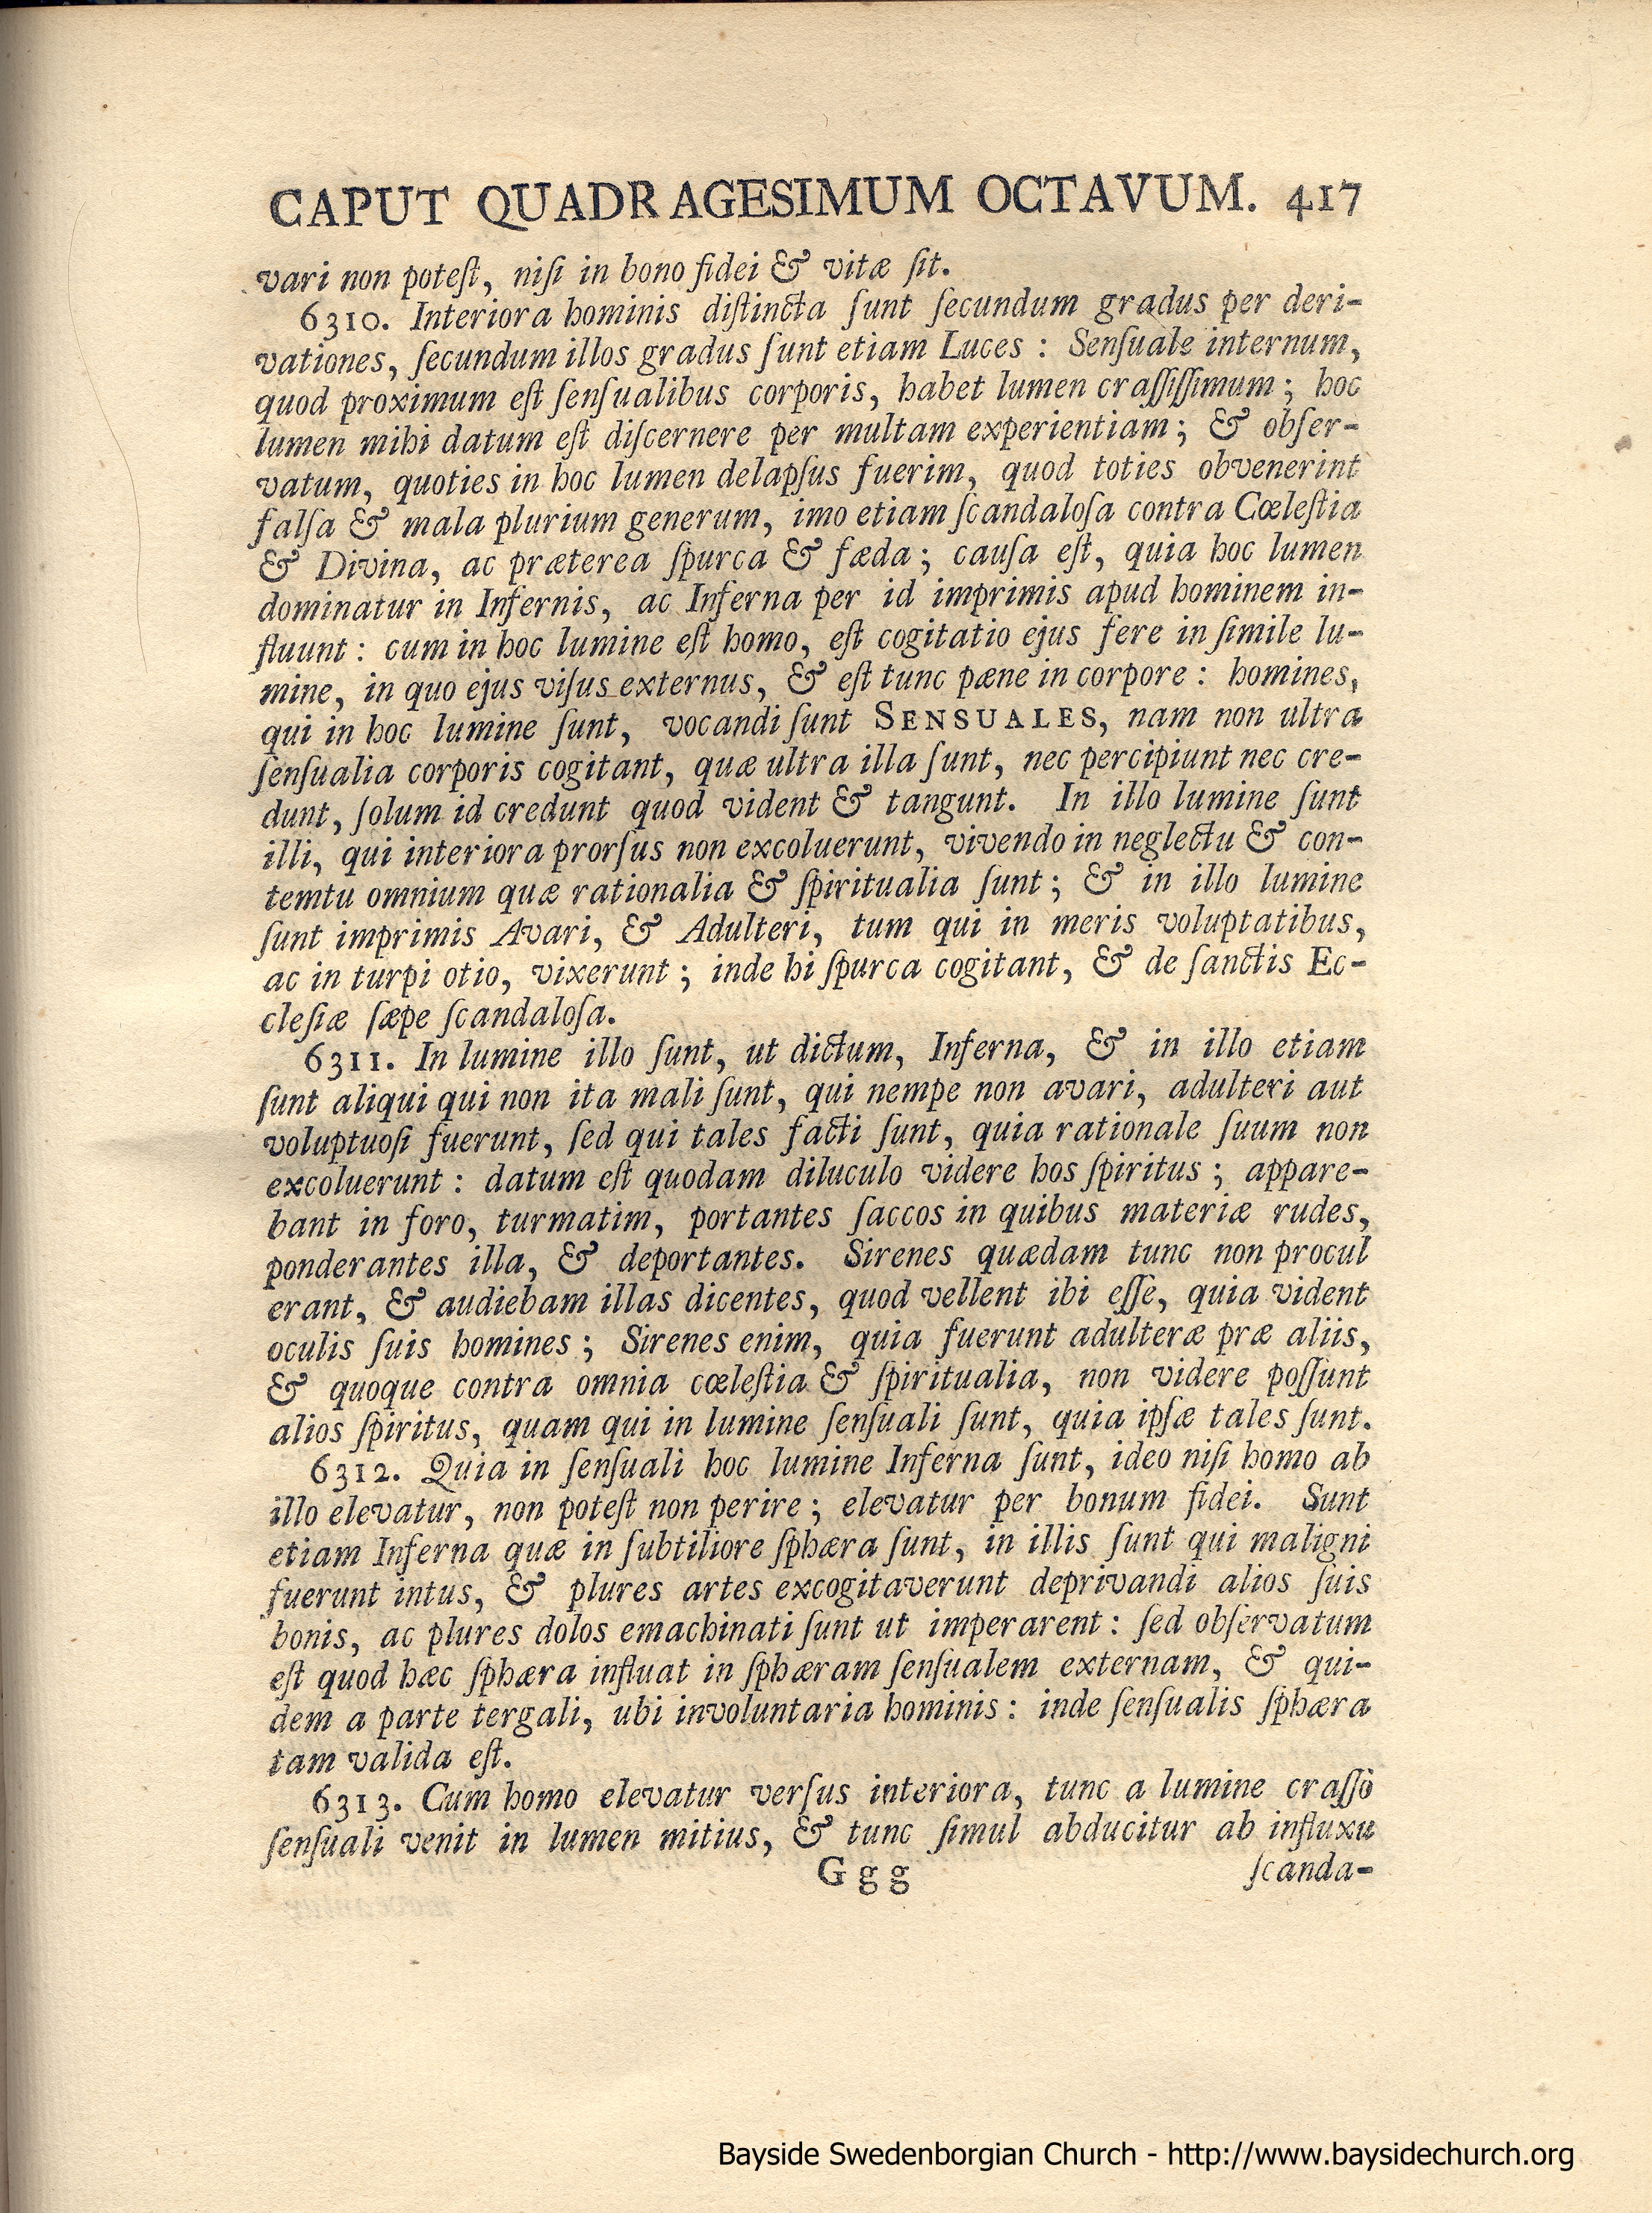 CAPUT QUADRAGESIMUM OCTAVUM. 417
vari non poteſt, niſi in bono fidei & vitæ ſit.
6310. Interiora hominis diſtincta ſunt ſecundum gradus per deri-
vationes, ſecundum illos gradus ſunt etiam Luces : Senſuale internum,
quod proximum eſt ſenſualibus corporis, habet lumen craſſiſſimum; hoc
lumen mihi datum eſt diſcernere per multam experientiam; & obſer-
vatum, quoties in hoc lumen delapſus fuerim, quod toties obvenerint
falſa & mala plurium generum, imo etiam ſcandaloſa contra Cœleſtia
& Divina, ac præterea ſpurca & fæda; cauſa eſt, quia hoc lumen
dominatur in Infernis, ac Inferna per id imprimis apud hominem in-
fluunt : cum in hoc lumine eſt homo, eſt cogitatio ejus fere in ſimile lu-
mine, in quo ejus viſus externus, & eſt tunc pæne in corpore : homines,
qui in hoc lumine ſunt, vocandi ſunt SENSUALES, nam non ultra
ſenſualia corporis cogitant, quæ ultra illa ſunt, nec percipiunt nec cre-
dunt, ſolum id credunt quod vident & tangunt. In illo lumine ſunt
illi, qui interiora prorſus non excoluerunt, vivendo in neglectu & con-
temtu omnium quæ rationalia & ſpiritualia ſunt; & in illo lumine
ſunt imprimis Avari, & Adulteri, tum qui in meris voluptatibus,
ac in turpi otio, vixerunt; inde hi ſpurca cogitant, & de ſanctis Ec-
cleſiæ ſæpe ſcandaloſa.
6311. In lumine illo ſunt, ut dictum, Inferna, & in illo etiam
ſunt aliqui qui non ita mali ſunt, qui nempe non avari, adulteri aut
voluptuoſi fuerunt, ſed qui tales facti ſunt, quia rationale ſuum non
excoluerunt : datum eſt quodam diluculo videre hos ſpiritus; appare-
bant in foro, turmatim, portantes ſaccos in quibus materiæ rudes,
ponderantes illa, & deportantes. Sirenes quædam tunc non procul
erant, & audiebam illas dicentes, quod vellent ibi eſſe, quia vident
oculis ſuis homines; Sirenes enim, quia fuerunt adulteræ præ aliis,
& quoque contra omnia cœleſtia & ſpiritualia, non videre poſſunt
alios ſpiritus, quam qui in lumine ſenſuali ſunt, quia ipſæ tales ſunt.
6312. Quia in ſenſuali hoc lumine Inferna ſunt, ideo niſi homo ab
illo elevatur, non poteſt non perire; elevatur per bonum fidei. Sunt
etiam Inferna quæ in ſubtiliore ſphæra ſunt, in illis ſunt qui maligni
fuerunt intus, & plures artes excogitaverunt deprivandi alios ſuis
bonis, ac plures dolos emachinati ſunt ut imperarent : ſed obſervatum
eſt quod hæc ſphæra influat in ſphæram ſenſualem externam, & qui-
dem a parte tergali, ubi involuntaria hominis : inde ſenſualis ſphæra
tam valida eſt.
6313. Cum homo elevatur verſus interiora, tunc a lumine craſſo
ſenſuali venit in lumen mitius, & tunc ſimul abducitur ab influxu
G g g ſcanda-
Bayside Swedenborgian Church - http://www.baysidechurch.org